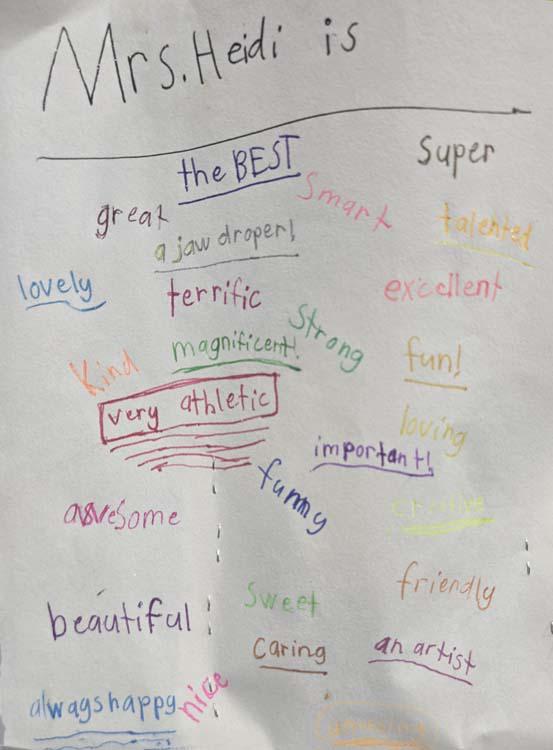 Mrs. Heidi is
the BEST
super
smart
great
talented
a jaw droper!
lovely
terrific
excellent
strong
magnificent!
fun!
Kind
very athletic
loving
important!
funny
creative
awesome
friendly
sweet
beautiful
caring
an artist
nice
always happy
amazing